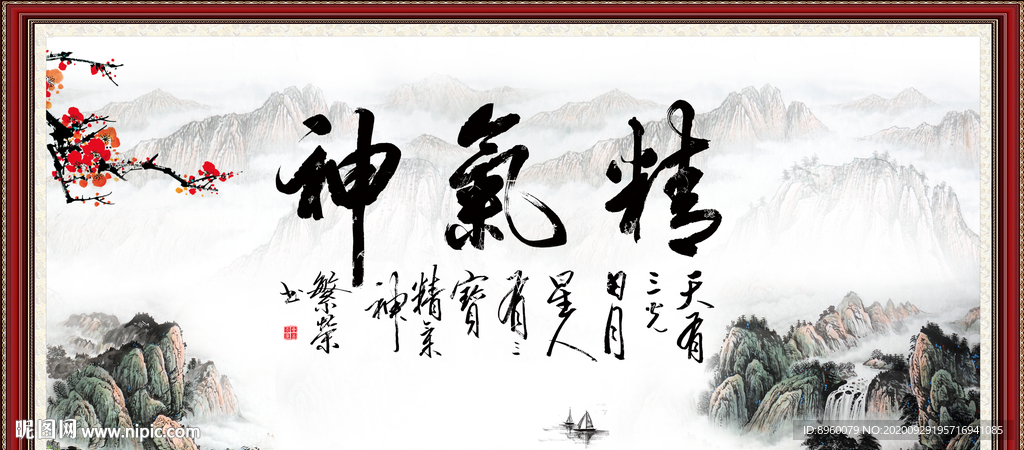 精氣神
天有
三光
日月
星人
有三
寶
精氣
神
繁榮
书
昵图网 www.nipic.com
ID:8960079 NO:20200929195716941085